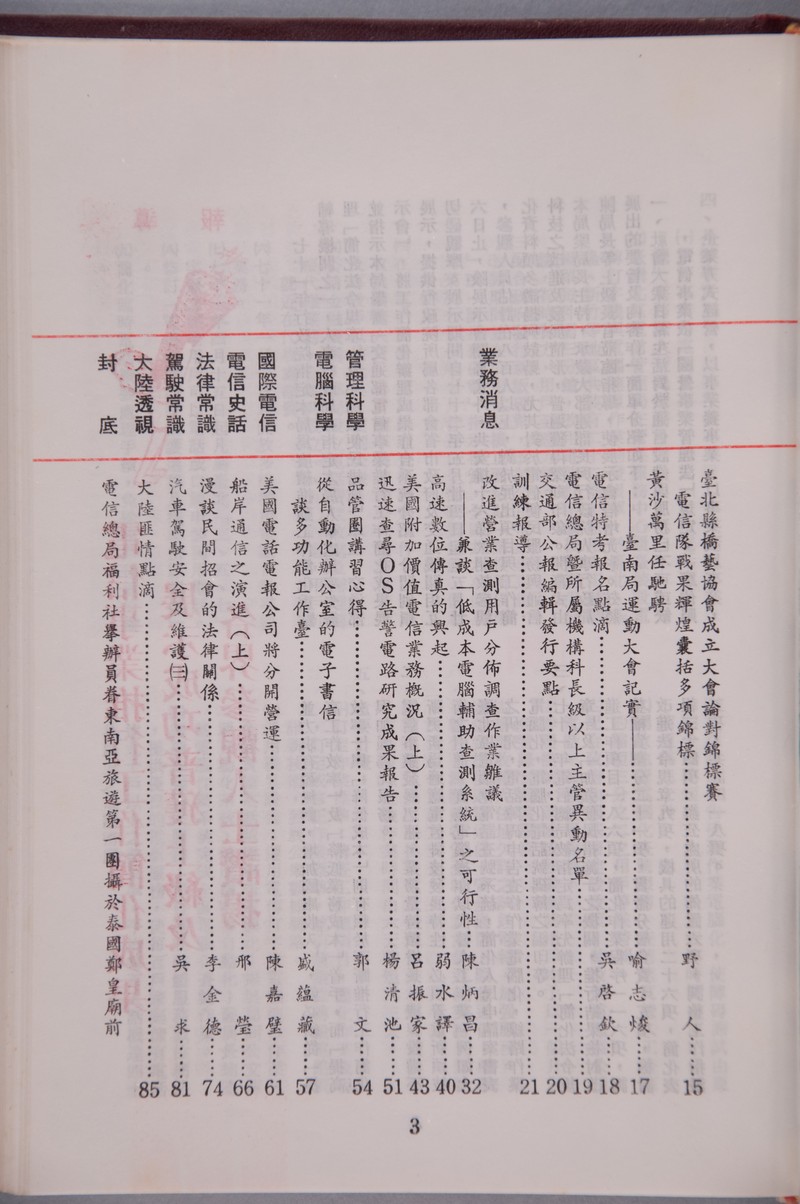 臺北縣橋藝協會成立大會論對錦標賽
電信隊戰果輝煌囊括多項錦標⋯⋯野人⋯⋯15
黃沙萬里任馳騁
——臺南局運動大會記實——⋯⋯喻志焌⋯⋯17
電信特考報名點滴⋯⋯吳啓欽⋯⋯18
電信總局曁所屬機構科長級以上主管異動名單⋯⋯19
交通部公報編輯發行要點⋯⋯20
訓練報導⋯⋯21
業務消息
改進營業查測用戶分佈調查作業雛議
——兼談「低成本電腦輔助查測系統」之可行性⋯⋯陳炳昌⋯⋯32
高速數位傳真的興起⋯⋯弱水譯⋯⋯40
美國附加價值電信業務概況（上）⋯⋯呂振家⋯⋯43
迅速查尋OS告警電路研究成果報告⋯⋯楊清池⋯⋯51
管理科學
品管圈講習心得⋯⋯郭文⋯⋯54
電腦科學
從自動化辦公室的電子書信
談多功能工作臺⋯⋯盛蘊藏⋯⋯57
國際電信
美國電話電報公司將分開營運⋯⋯陳嘉璧⋯⋯61
電信史話
船岸通信之演進（上）⋯⋯邢瑩⋯⋯66
法律常識
漫談民間招會的法律關係⋯⋯李金德⋯⋯74
駕駛常識
汽車駕駛安全及維護㈢⋯⋯吳求⋯⋯81
大陸透視
大陸匪情點滴⋯⋯85
封底
電信總局福利社舉辦員眷東南亞旅遊第一團攝於泰國鄭皇廟前
3